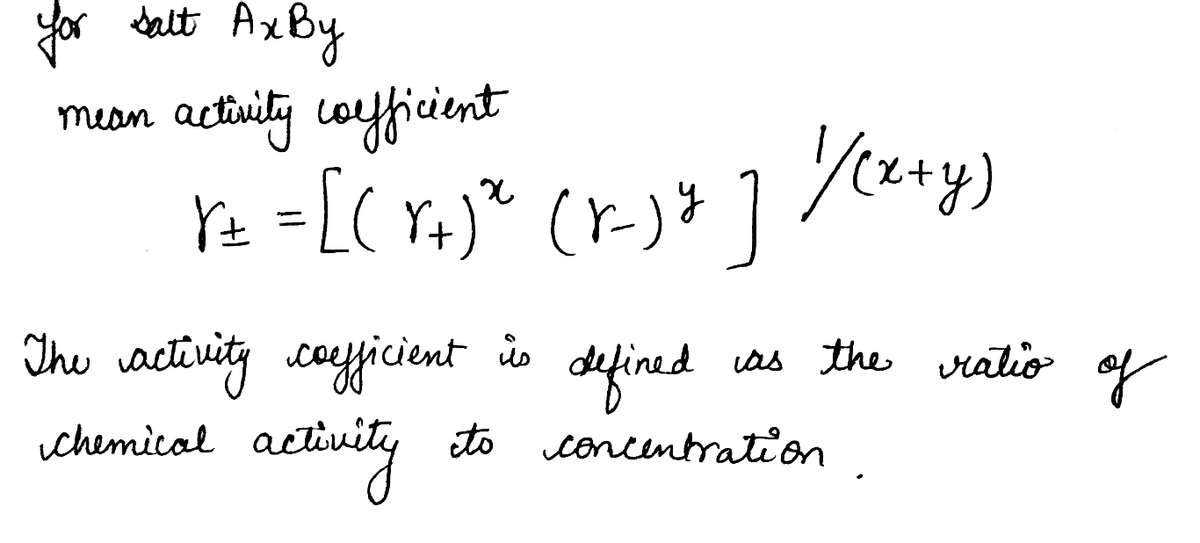 for salt AxBy
mean activity coefficient
γ± = [(γ+)^x (γ-)^y]^1/(x+y)
The activity coefficient is defined as the ratio of
chemical activity to concentration.